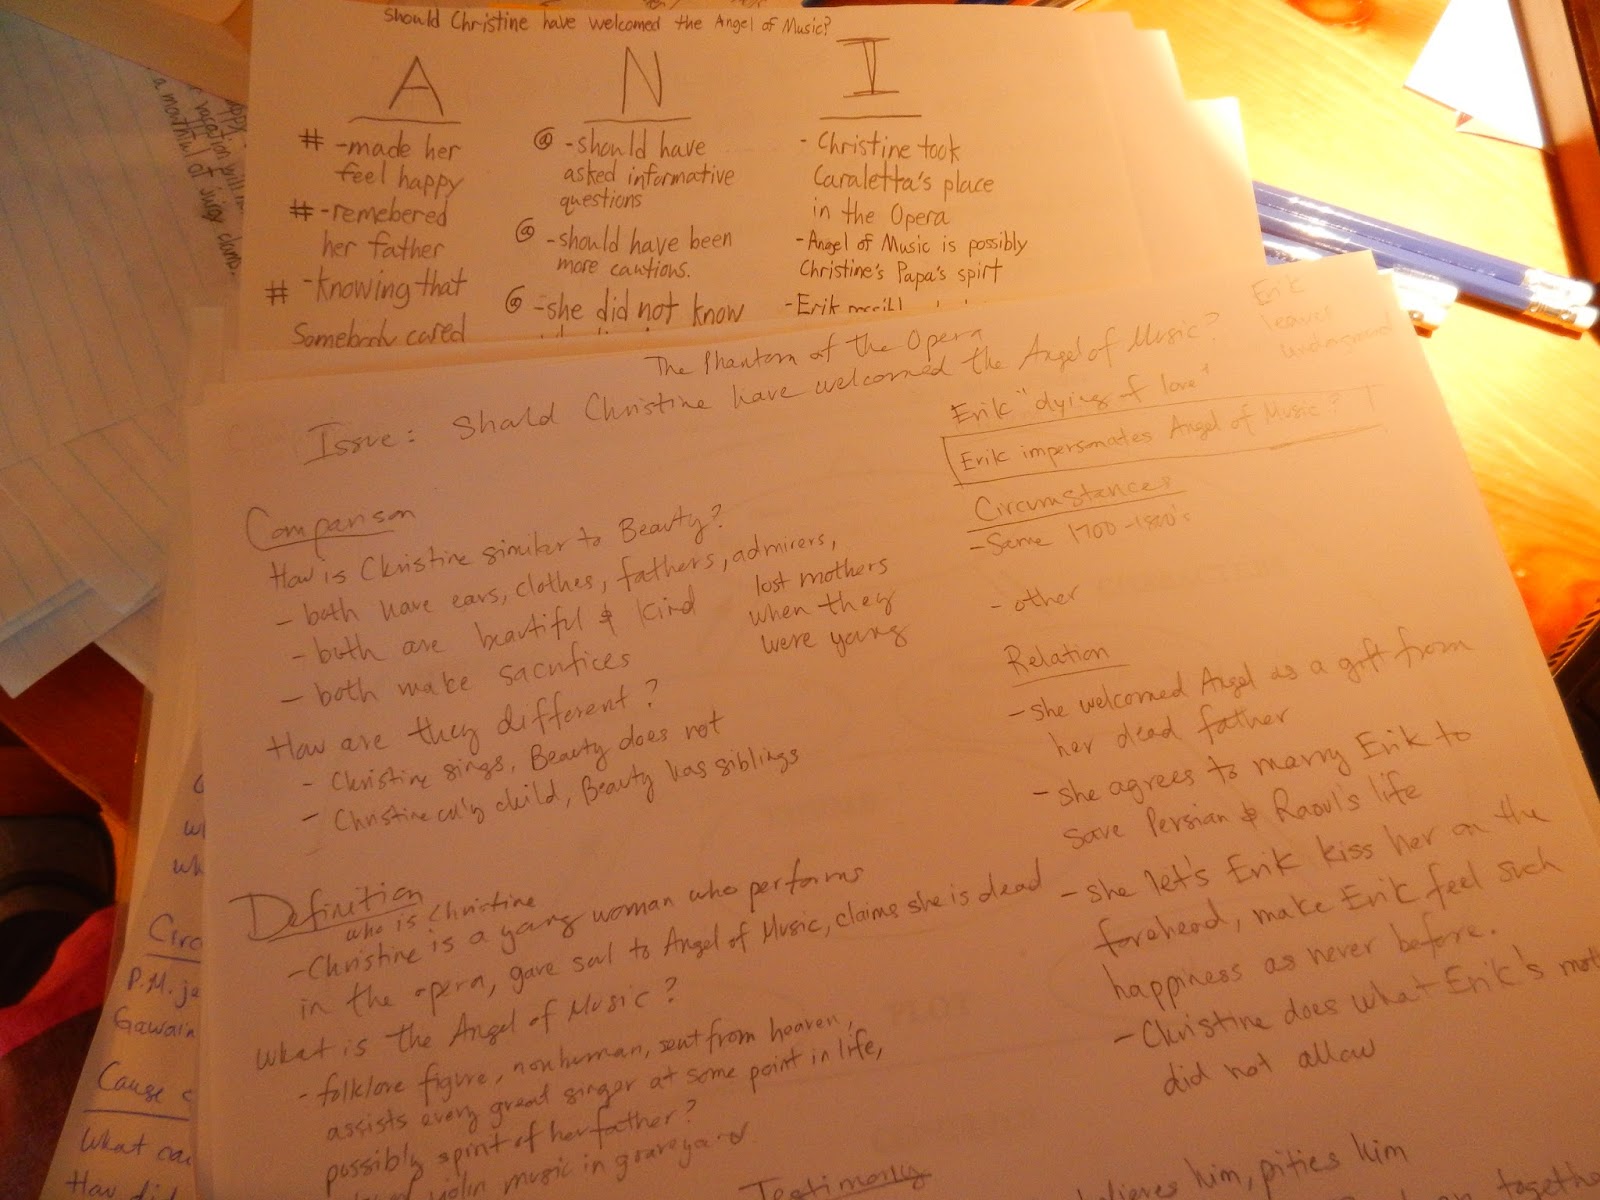 Should Christine have welcomed the Angel of Music?
A
# -made her
feel happy
# -remebered
her father
# -knowing that
Somebody cared
N
@ -should have
asked informative
questions
@ -should have been
more cautions.
@ -she did not know
I
- Christine took
Caraletta's place
in the Opera
- Angel of Music is possibly
Christine's Papa's spirt
- Erik
a mouthful of juicy clams.
The Phantom of the Opera
Issue: Should Christine have welcomed the Angel of Music?
Comparison
How is Christine similar to Beauty?
- both have ears, clothes, fathers, admirers,
lost mothers
when they
were young
- both are beautiful & kind
- both make sacrifices
How are they different?
- Christine sings, Beauty does not
- Christine only child, Beauty has siblings
Definition
who is Christine
- Christine is a young woman who performs
in the opera, gave soul to Angel of Music, claims she is dead
What is the Angel of Music?
- folklore figure, nonhuman, sent from heaven,
assists every great singer at some point in life,
possibly spirit of her father?
violin music in graveyard
Erik
leaves
underground
Erik "dying of love"
Erik impersonates Angel of Music?
Circumstances
- Same 1700-1800's
- other
Relation
- she welcomed Angel as a gift from
her dead father
- she agrees to marry Erik to
save Persian & Raoul's life
- she let's Erik kiss her on the
forehead, make Erik feel such
happiness as never before.
- Christine does what Erik's
did not allow
Testimony
him, pities him
Circ
P.M.
Gawain
Cause
What
How did